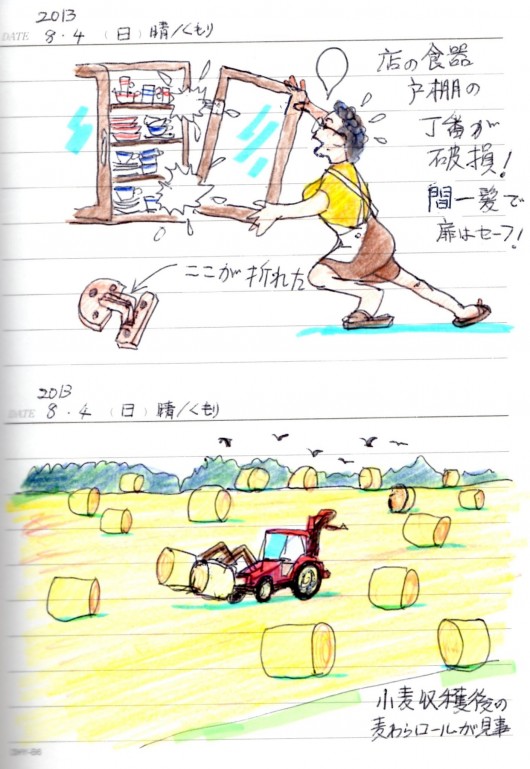 2013
DATE 8・4 （日）晴/くもり
店の食器
戸棚の
丁番が
破損！
間一髪で
扉はセーフ！
ここが折れた
2013
DATE 8・4 （日）晴/くもり
小麦収穫後の
麦わらロールが見事